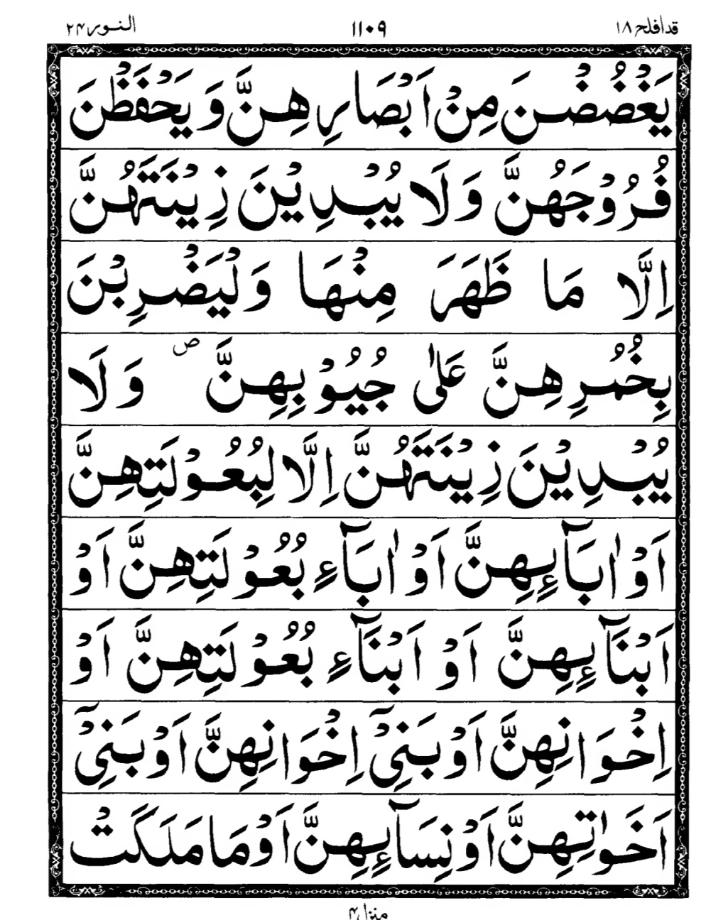 قدافلح ۱۸ ۱۱۰۹ النور ۲۴
يَغْضُضْنَ مِنْ اَبْصَارِهِنَّ وَ يَحْفَظْنَ
فُرُوْجَهُنَّ وَلَا يُبْدِيْنَ زِيْنَتَهُنَّ
اِلَّا مَا ظَهَرَ مِنْهَا وَلْيَضْرِبْنَ
بِخُمُرِهِنَّ عَلٰى جُيُوْبِهِنَّ ۖ وَلَا
يُبْدِيْنَ زِيْنَتَهُنَّ اِلَّا لِبُعُوْلَتِهِنَّ
اَوْ اٰبَآٮِٕهِنَّ اَوْ اٰبَآءِ بُعُوْلَتِهِنَّ اَوْ
اَبْنَآٮِٕهِنَّ اَوْ اَبْنَآءِ بُعُوْلَتِهِنَّ اَوْ
اِخْوَانِهِنَّ اَوْ بَنِىْٓ اِخْوَانِهِنَّ اَوْ بَنِىْٓ
اَخَوٰتِهِنَّ اَوْ نِسَآٮِٕهِنَّ اَوْ مَا مَلَكَتْ
منزل ۴